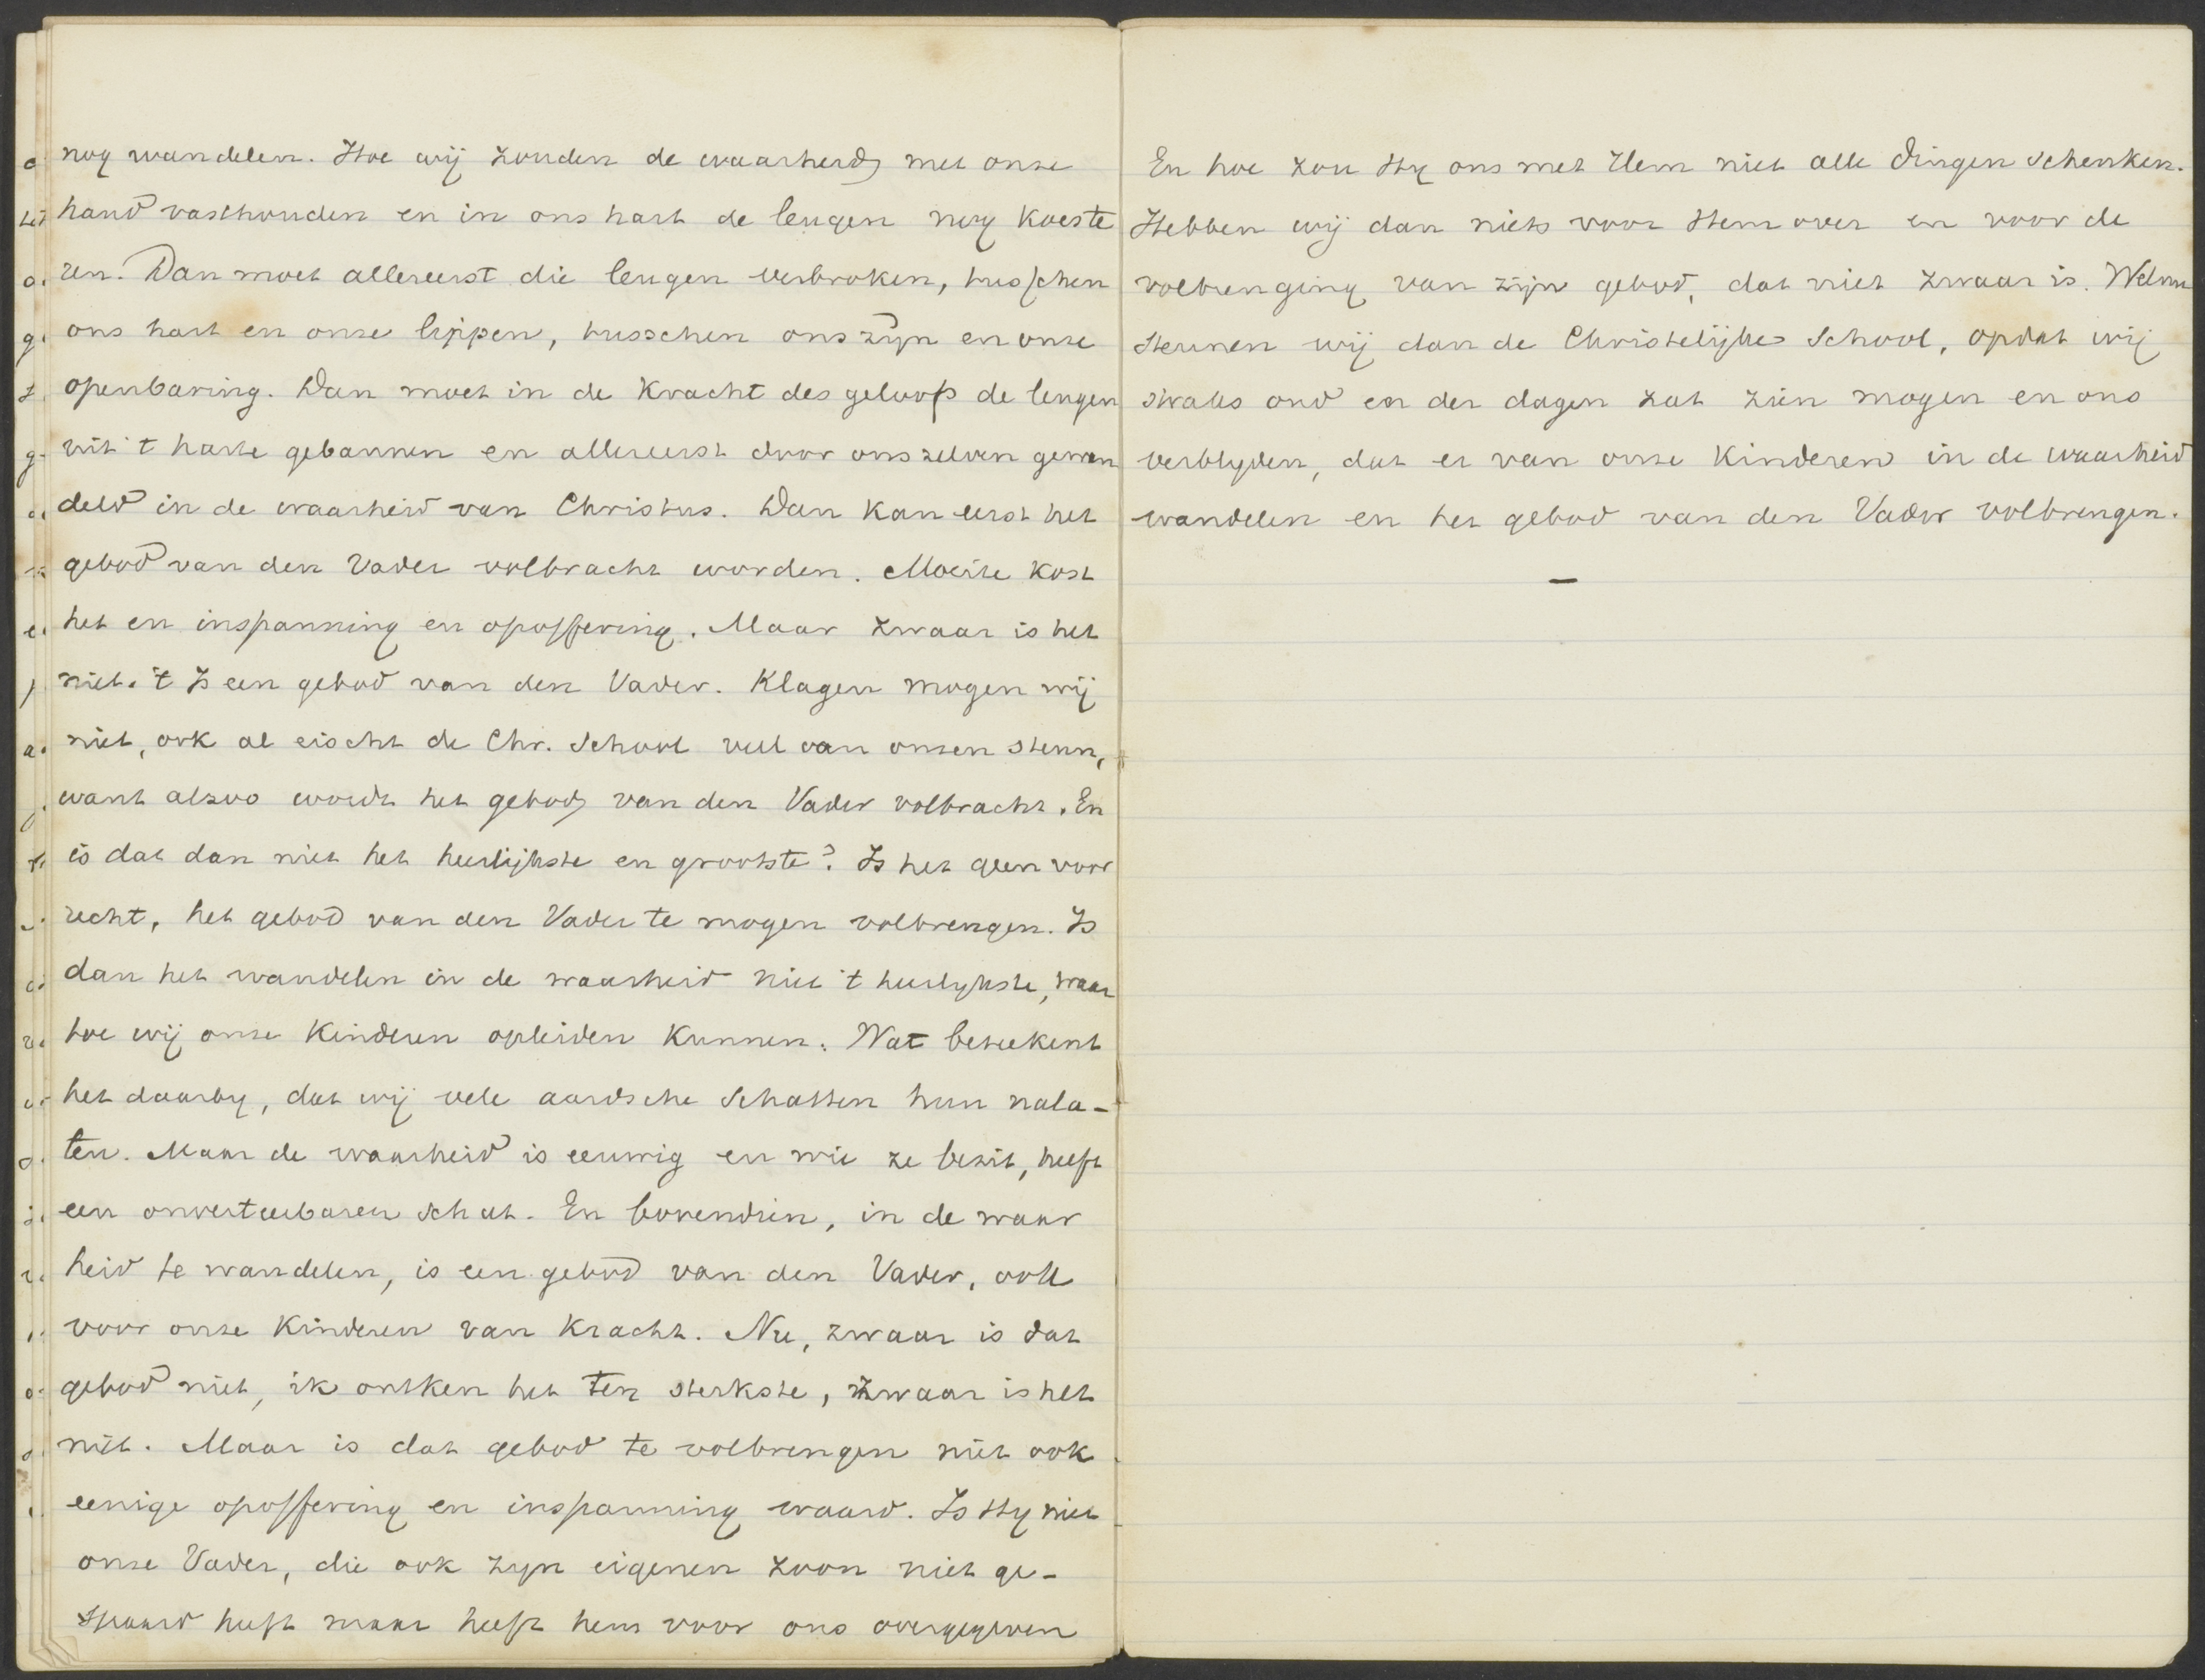 nog wandelen. Hoe wij zouden de waarheid met onze
hand vasthouden en in ons hart de leugen nog koeste
ren. Dan moet allereerst die leugen verbroken, tusschen
ons hart en onze lippen, tusschen ons zijn en onze
openbaring. Dan moet in de kracht des geloofs de leugen
uit 't harte gebannen en allereerst door ons zelven gewan
deld in de waarheid van Christus. Dan kan eerst het
gebod van den Vader volbracht worden. Moeite kost
het en inspanning en opoffering. Maar zwaar is het
niet. 't Is een gebod van den Vader. Klagen mogen wij
niet, ook al eischt de Chr. School veel van onzen steun,
want alzoo wordt het gebod van den Vader volbracht. En
is dat dan niet het heerlijkste en grootste? Is het geen voor
recht, het gebod van den Vader te mogen volbrengen. Is
dan het wandelen in de waarheid niet 't heerlykste, waar
toe wij onze kinderen opleiden kunnen. Wat beteekent
het daarby, dat wij vele aardsche schatten hun nala-
ten. Maar de waarheid is eeuwig en wie ze bezit, heeft
een onverteerbaren schat. En bovendien, in de waar
heid te wandelen, is een gebod van den Vader, ook
voor onze kinderen van kracht. Nu, zwaar is dat
gebod niet, ik ontken het ten sterkste, zwaar is het
niet. Maar is dat gebod te volbrengen niet ook
eenige opoffering en inspanning waard. Is Hy niet
onze Vader, die ook zyn eigenen zoon niet ge-
spaard heeft maar heeft hem voor ons overgegeven
En hoe zou Hy ons met Hem niet alle dingen schenken.
Hebben wij dan niets voor Hem over en voor de
volbrenging van zijn gebod, dat niet zwaar is. Welnu
steunen wij dan de Christelijke School, opdat wij
straks oud en der dagen zat zien mogen en ons
verblyden, dat er van onze kinderen in de waarheid
wandelen en het gebod van den Vader volbrengen.
—